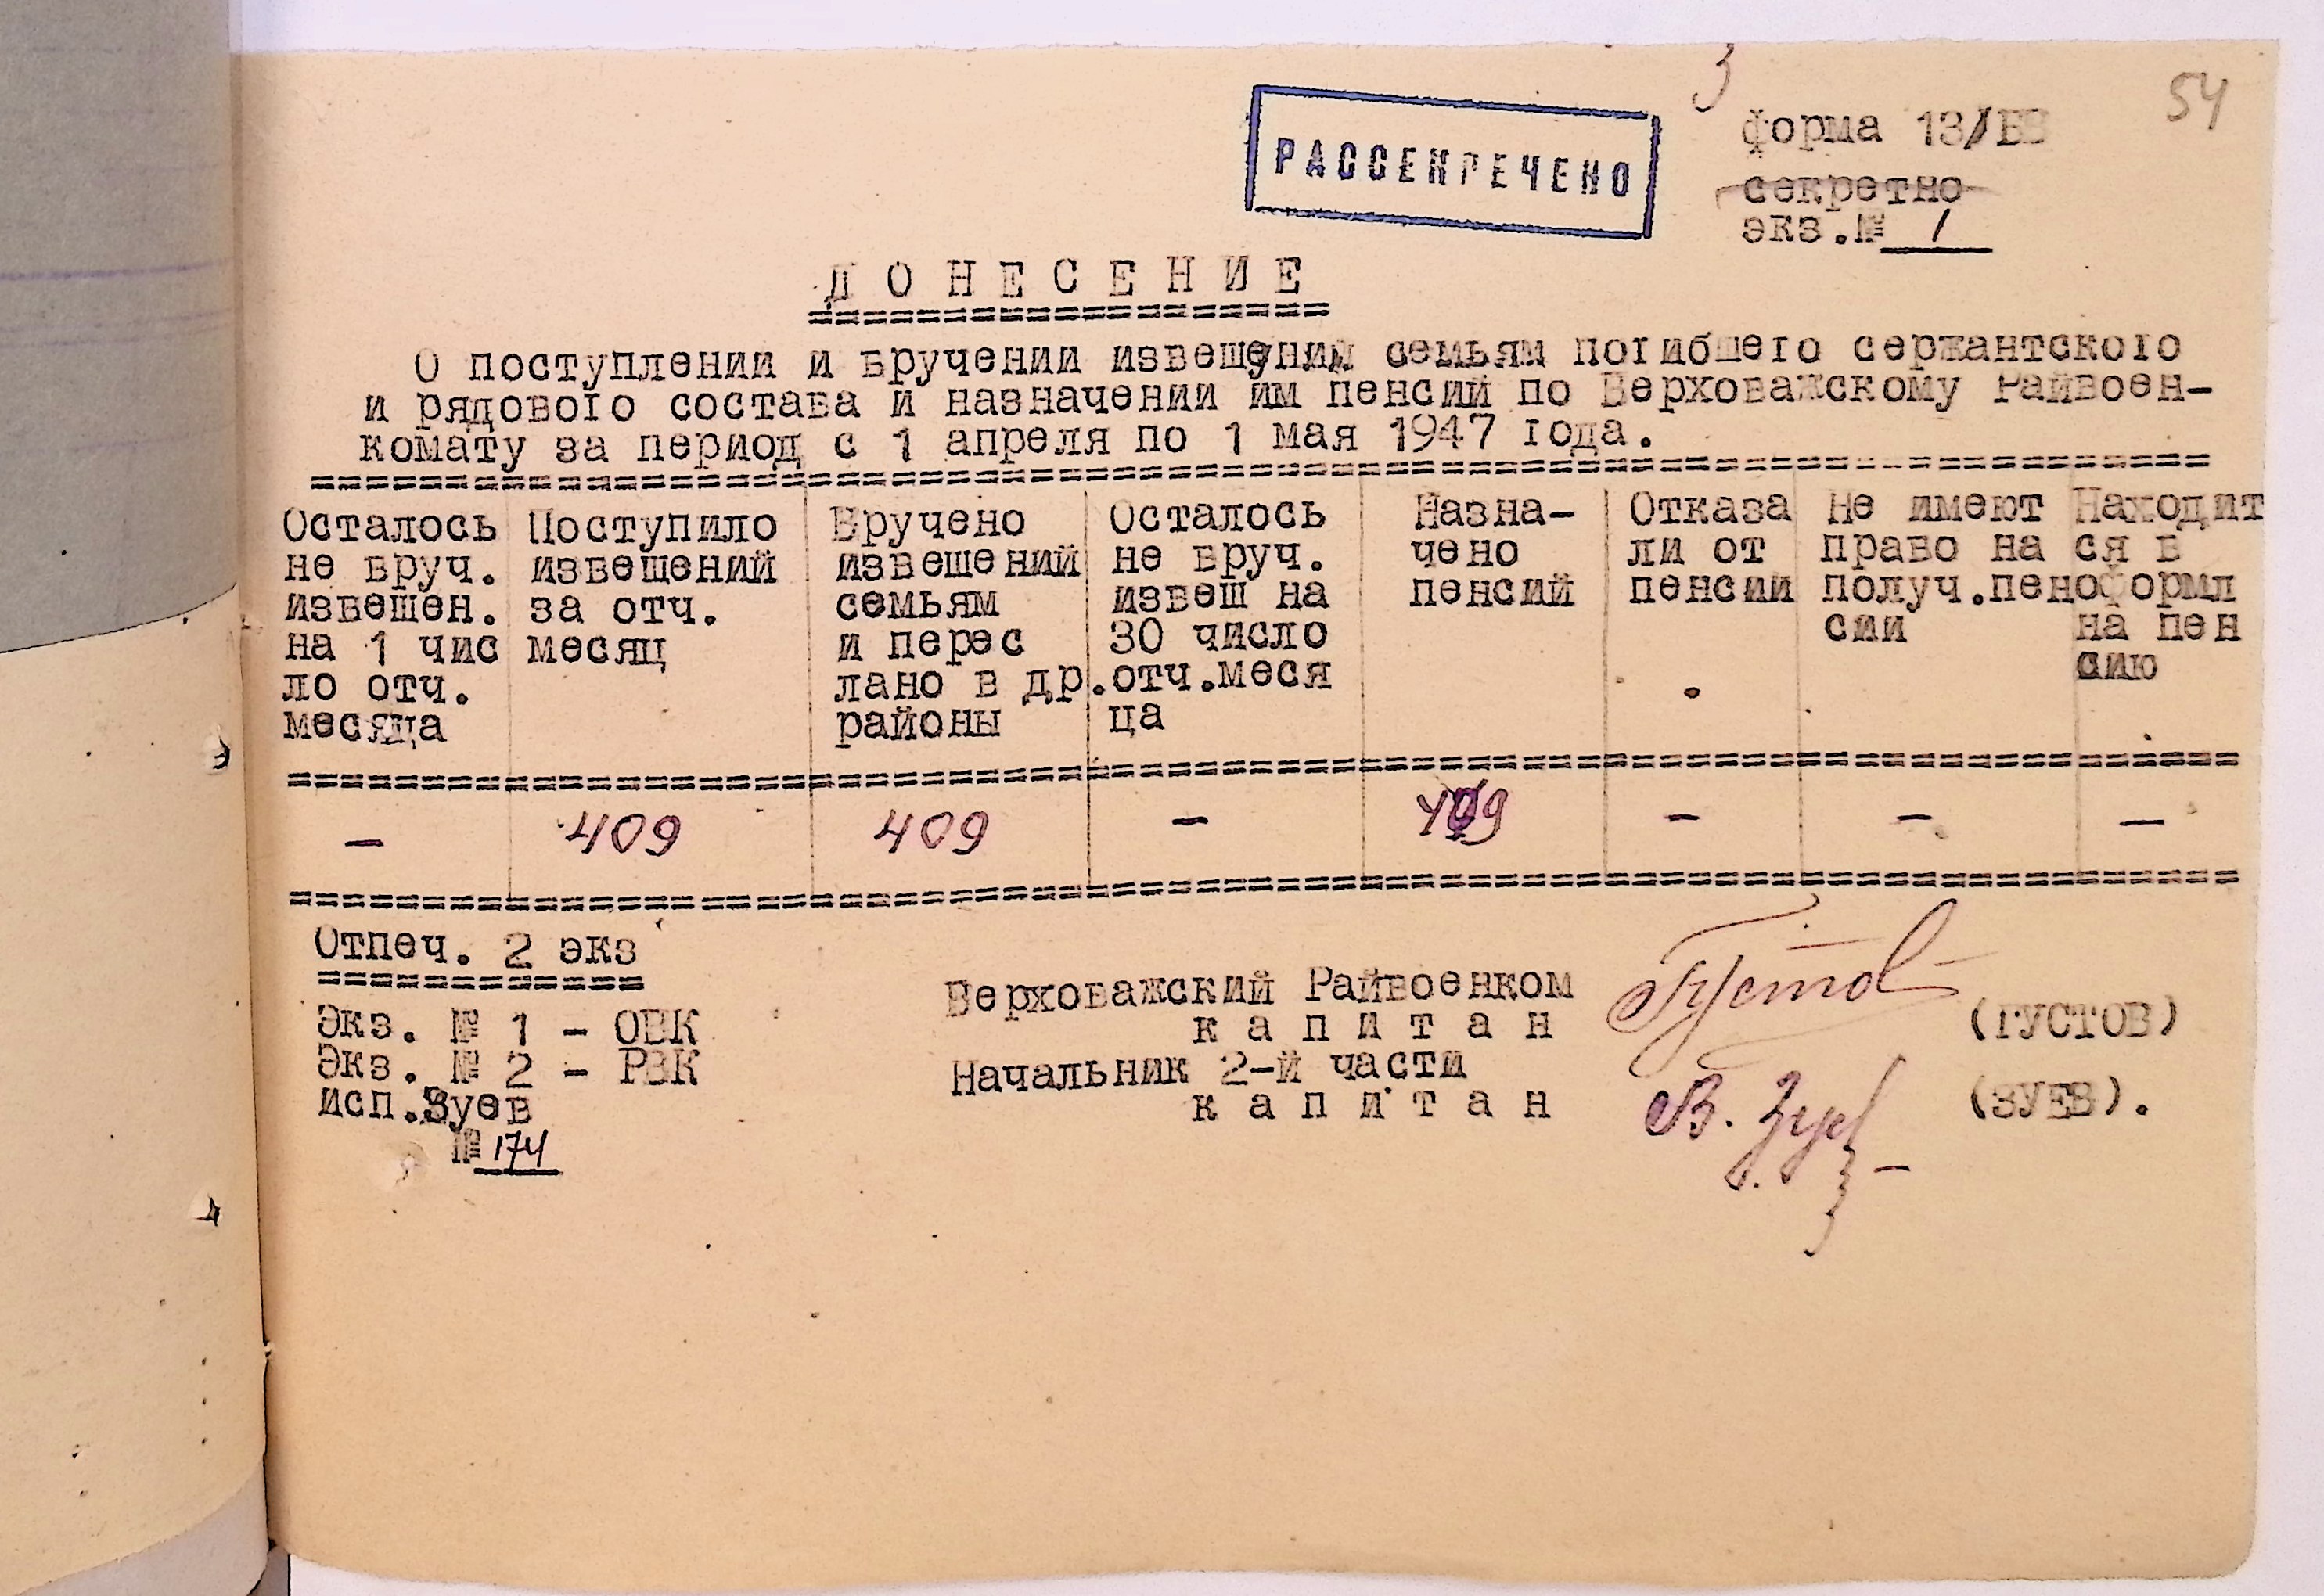 54
форма 13/БВ
РАССЕКРЕЧЕНО
секретно
экз.№ 1
ДОНЕСЕНИЕ
О поступлении и вручении извещений семьям погибшего сержантского
и рядового состава и назначении им пенсий по Верховажскому Райвоен-
комату за период с 1 апреля по 1 мая 1947 года.
Осталось
не вруч.
извешен.
на 1 чис
ло отч.
месяца
Поступило
извешений
за отч.
месяц
Вручено
извешений
семьям
и перес
лано в др.
районы
Осталось
не вруч.
извеш на
30 число
отч.меся
ца
Назна-
чено
пенсий
Отказа
ли от
пенсии
Не имеют
право на
получ.пен
сии
Находит
ся в
оформл
на пен
сию
– 409 409 – 409 – – –
Отпеч. 2 экз
Экз. № 1 – ОВК
Экз. № 2 – РВК
исп.Зуев
№ 174
Верховажский Райвоенком
капитан Густов (ГУСТОВ)
Начальник 2-й части
капитан В. Зуев (ЗУЕВ).